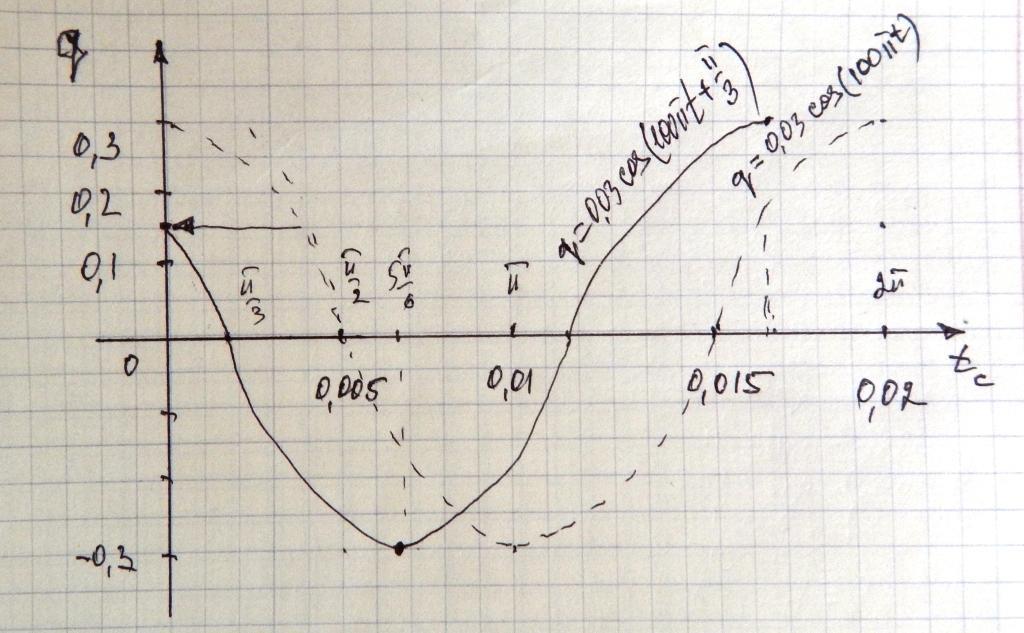 q
0,3
0,2
0,1
0
-0,3
π/3
π/2
5π/6
π
2π
0,005
0,01
0,015
0,02
t c
q=0,03 cos(100πt+π/3)
q=0,03 cos(100πt)